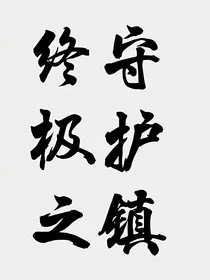 终极之
守护镇